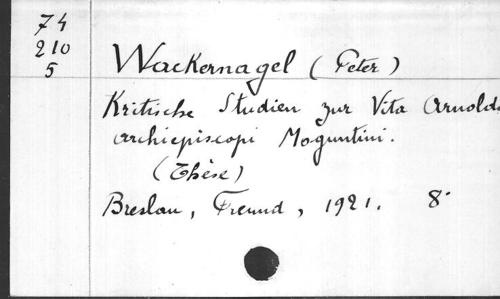 74
210
5
Wackernagel (Peter)
Kritische Studien zur Vita Arnoldi
archiepiscopi Moguntini.
(Thèse)
Breslau, Freund, 1921. 8°